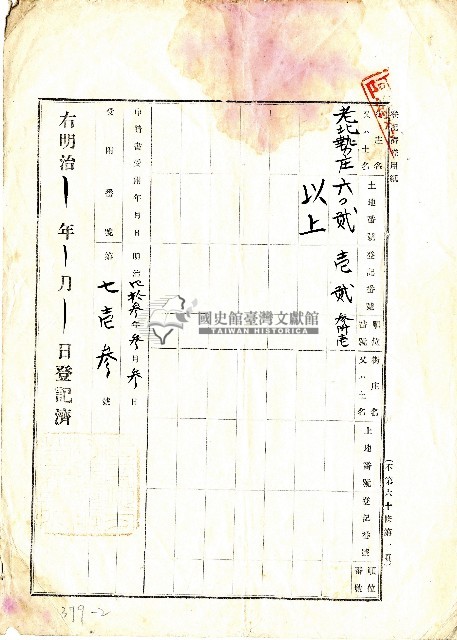 街庄名
又ハ土名
土地番號
登記番號
順位
番號
街庄名
又ハ土名
土地番號
登記番號
順位
番號
老北勢庄
六ノ貳
壱貳
以上
申請書受附年月日
明治四拾參年參月參日
受附番號
第七壱參號
右明治 年 月 日登記濟
國史館臺灣文獻館
TAIWAN HISTORICA
379-2